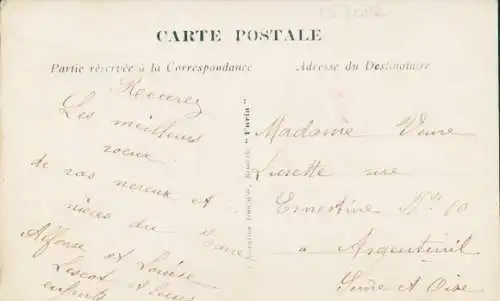 CARTE POSTALE
Partie réservée à la Correspondance
Adresse du Destinataire
Recevez
Les meilleurs
voeux
de vos neveux et
nièces du
Alfonse et Louise
Lescot et leurs
enfants
"Furia"
Madame Veuve
Lurette rue
Ernestine No 10
à Argenteuil
Seine et Oise